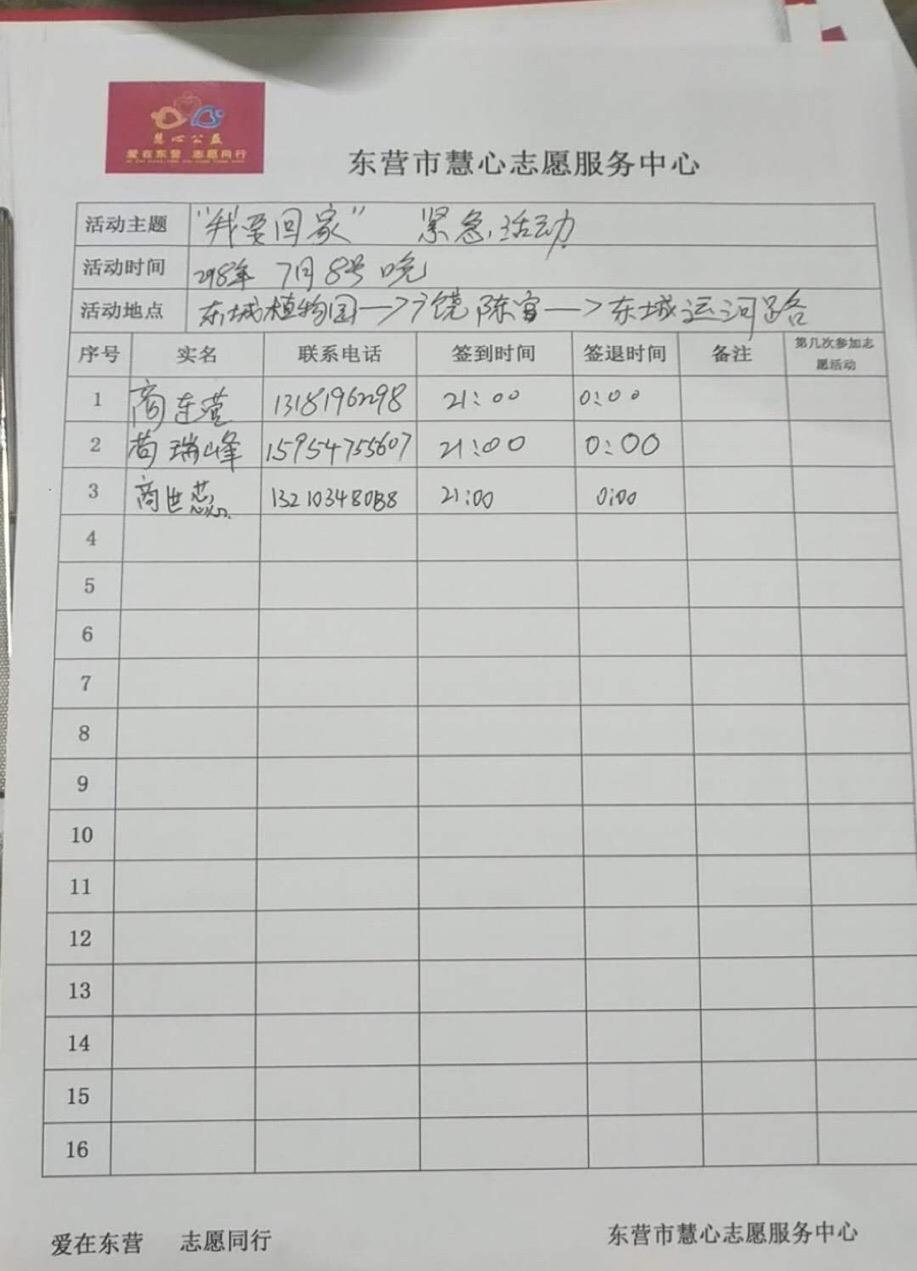 慧心公益
爱在东营 志愿同行
东营市慧心志愿服务中心
活动主题 "我要回家" 紧急活动
活动时间 7月8号晚
活动地点 东城植物园→广饶陈官→东城运河路
序号 实名 联系电话 签到时间 签退时间 备注 第几次参加志愿活动
1 商连营 13181962298 21:00 0:00
2 苟瑞峰 15954755607 21:00 0:00
3 商世蕊 21:00 0:00
4
5
6
7
8
9
10
11
12
13
14
15
16
爱在东营 志愿同行 东营市慧心志愿服务中心